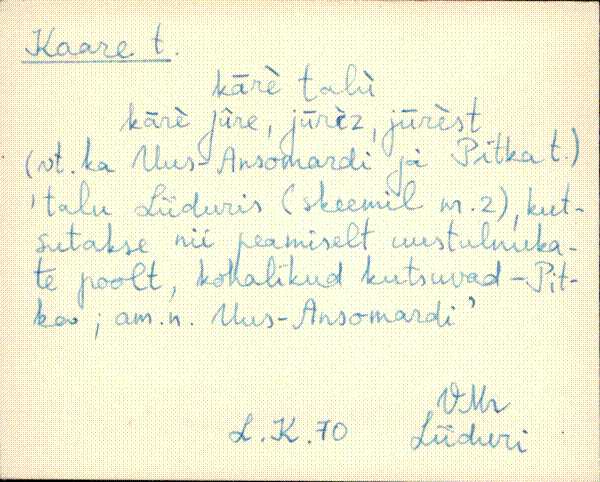 Kaare t.
kārè talù
kārè jūre, jūrèz, jūrèst
(vt. ka Uus-Ansomardi ja Pitka t.)
'talu Liiduris (skeemil nr. 2), kut-
sutakse nii peamiselt uustulnuka-
te poolt, kohalikud kutsuvad - Pit-
ka; am. n. Uus-Ansomardi'
L.K.70
VMr
Liiduri